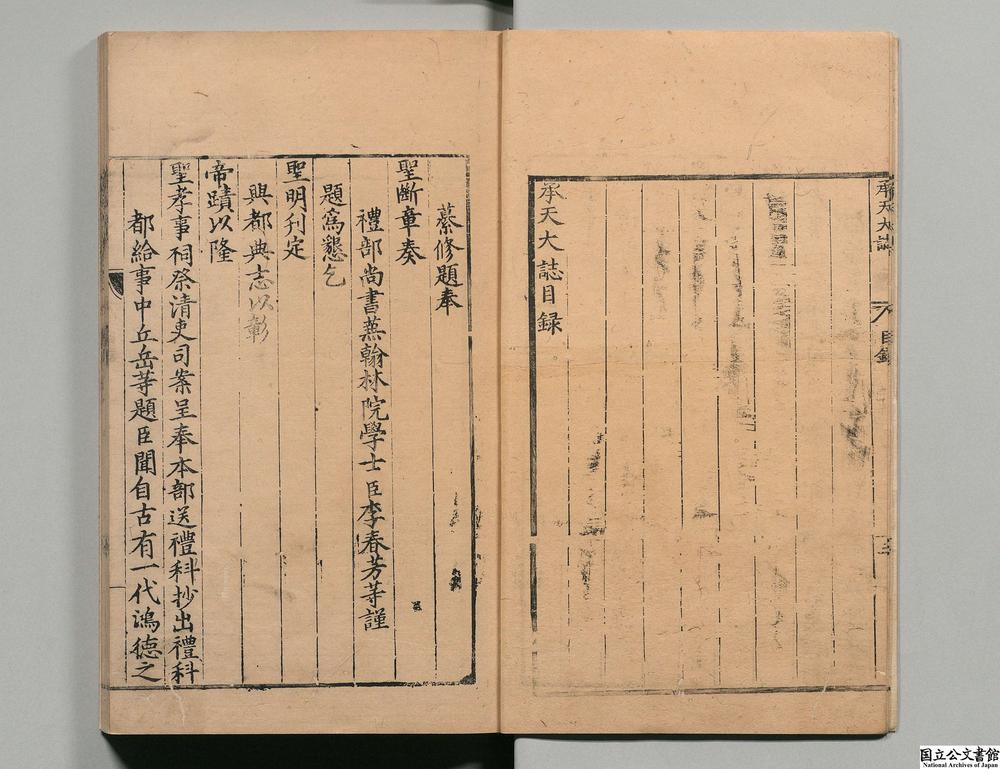 承天大誌
目録
承天大誌目録
纂修題奉
聖斷章奏
禮部尚書蕪翰林院學士臣李春芳等謹
題爲懇乞
聖明刋定
興都典志以彰
帝蹟以隆
聖孝事祠祭清吏司案呈奉本部送禮科抄出禮科
都給事中丘岳等題臣聞自古有一代鴻德之
国立公文書館
National Archives of Japan